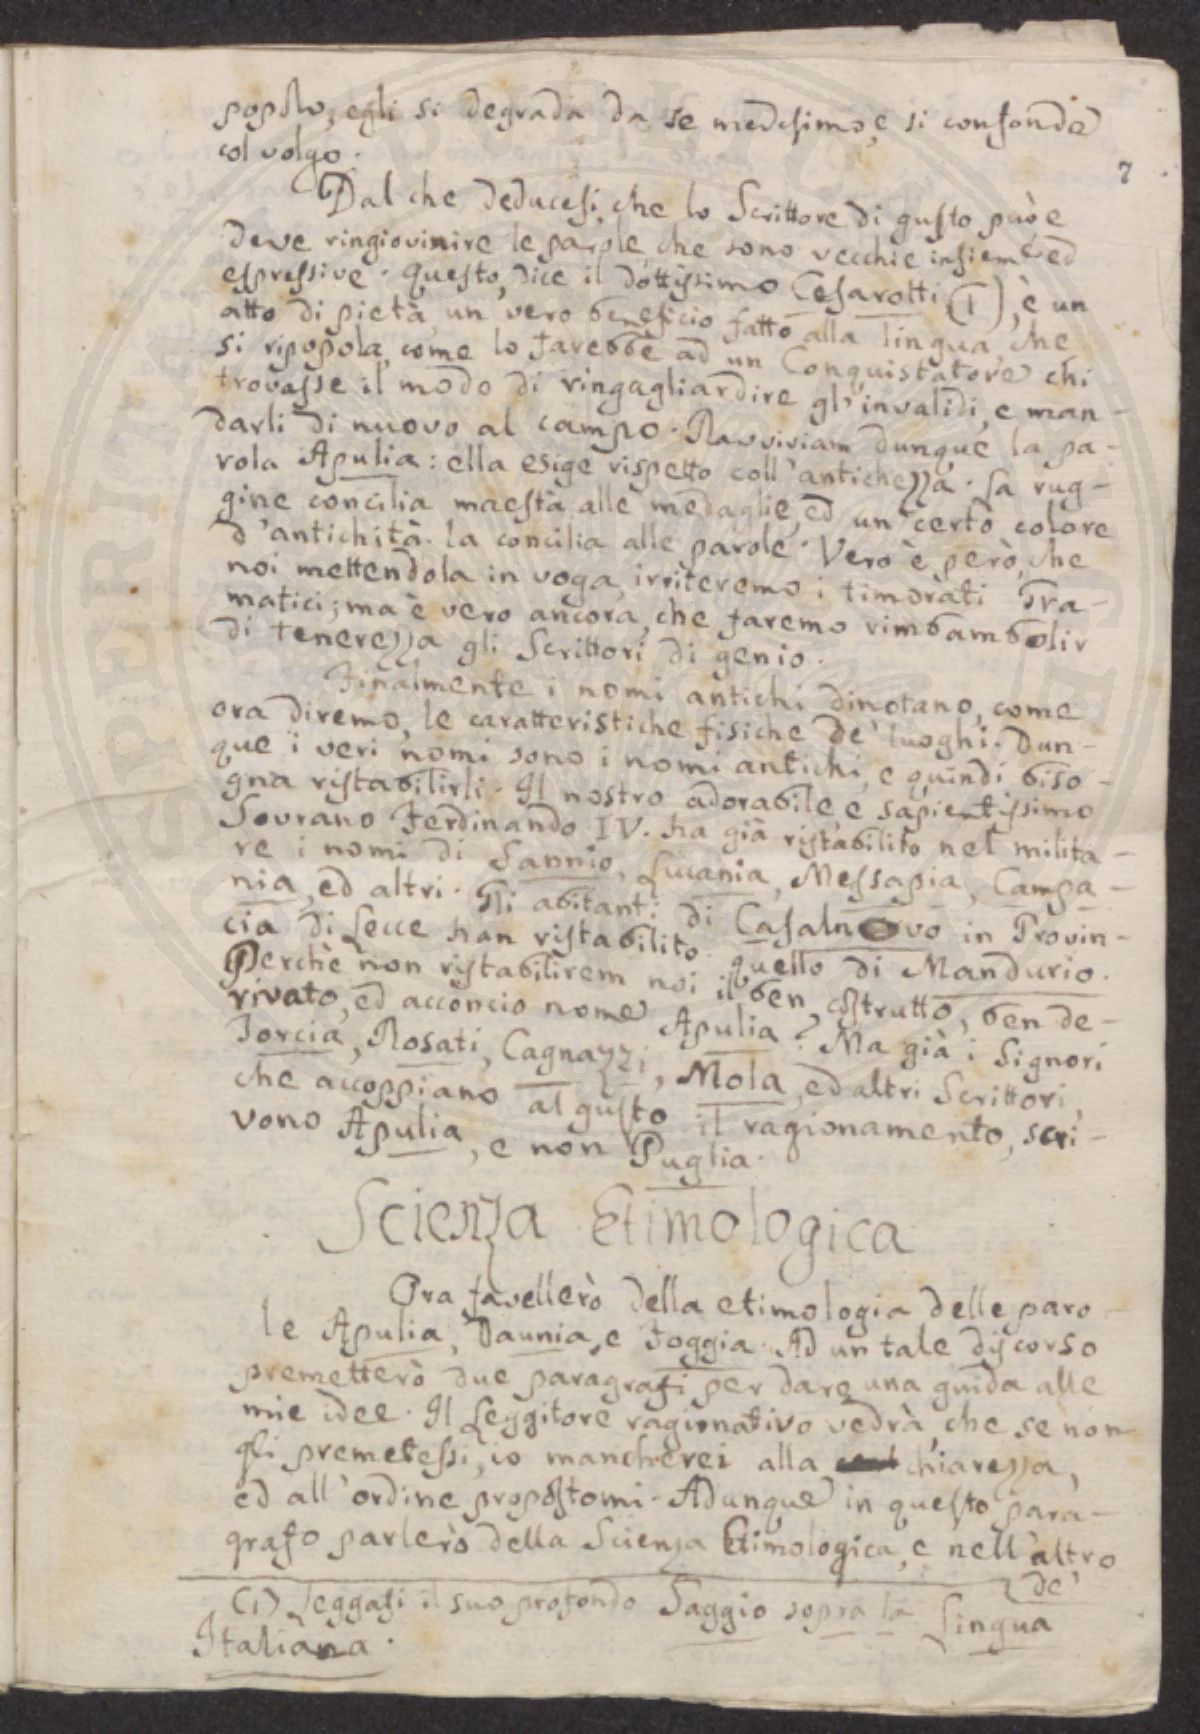 popolo, egli si degrada da se medesimo, e si confonde
col volgo.
7
Dal che deducesi, che lo Scrittore di gusto può e
deve ringiovinire le parole, che sono vecchie insieme, ed
espressive. Questo, dice il dottissimo Cesarotti (1), è un
atto di pietà, un vero beneficio fatto alla lingua, che
si ripopola, come lo farebbe ad un Conquistatore chi
trovasse il modo di ringagliardire gl'invalidi, e man-
darli di nuovo al campo. Ravviviam dunque la pa-
rola Apulia: ella esige rispetto coll'antichezza. La rug-
gine concilia maestà alle medaglie, ed un certo colore
d'antichità la concilia alle parole. Vero è però, che
noi mettendola in voga, irriteremo i timorati Gra-
matici; ma è vero ancora, che faremo rimbambolir
di tenerezza gli Scrittori di genio.
Finalmente i nomi antichi dinotano, come
ora diremo, le caratteristiche fisiche de' luoghi. Dun-
que i veri nomi sono i nomi antichi, e quindi biso-
gna ristabilirli. Il nostro adorabile, e sapientissimo
Sovrano Ferdinando IV. ha già ristabilito nel milita-
re i nomi di Sannio, Lucania, Messapia, Campa-
nia, ed altri. Gli abitanti di Casalnovo in Provin-
cia di Lecce han ristabilito quello di Mandurio.
Perchè non ristabilirem noi il ben costrutto, ben de-
rivato, ed acconcio nome Apulia? Ma già i Signori
Forcia, Rosati, Cagnazzi, Mola, ed altri Scrittori,
che accoppiano al gusto il ragionamento, scri-
vono Apulia, e non Puglia.
Scienza Etimologica
Ora favellerò della etimologia delle paro-
le Apulia, Daunia, e Foggia. Ad un tale discorso
premetterò due paragrafi per dare una guida alle
mie idee. Il Leggitore ragionativo vedrà, che se non
gli premetessi, io mancherei alla chiarezza,
ed all'ordine propostomi. Adunque in questo para-
grafo parlerò della Scienza Etimologica, e nell'altro
de'
(1) Leggasi il suo profondo Saggio sopra la Lingua
Italiana.